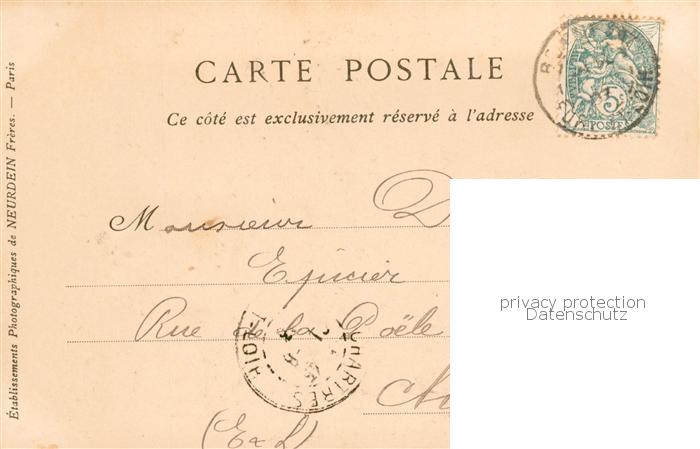 CARTE POSTALE
Ce côté est exclusivement réservé à l'adresse
Établissements Photographiques de NEURDEIN Frères. — Paris
5
POSTES
Monsieur D
Epicier
Rue de la Poële
CHARTRES
(E & L)
privacy protection
Datenschutz